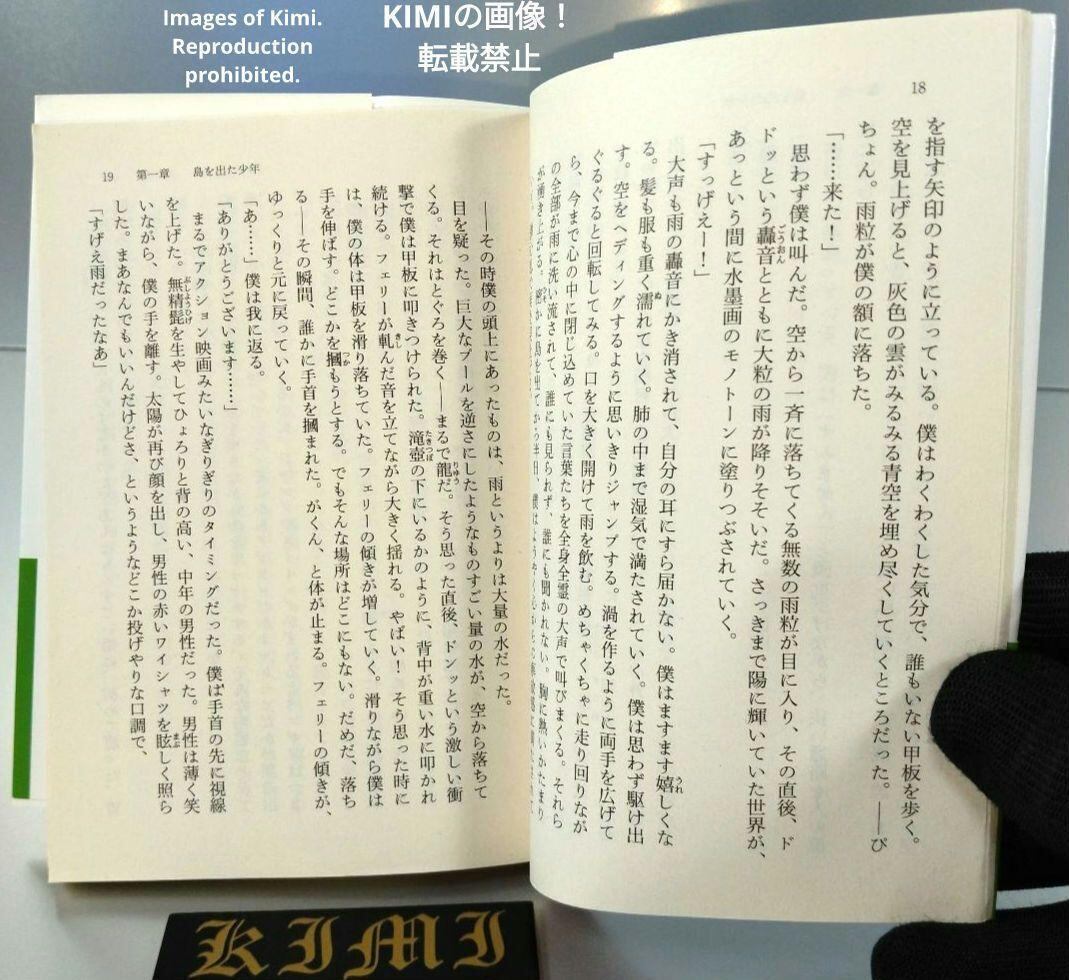 Images of Kimi.
Reproduction
prohibited.
KIMIの画像！
転載禁止
18
を指す矢印のように立っている。僕はわくわくした気分で、誰もいない甲板を歩く。
空を見上げると、灰色の雲がみるみる青空を埋め尽くしていくところだった。――ぴ
ちょん。雨粒が僕の額に落ちた。
「……来た！」
思わず僕は叫んだ。空から一斉に落ちてくる無数の雨粒が目に入り、その直後、ド
ドッという轟音とともに大粒の雨が降りそそいだ。さっきまで陽に輝いていた世界が、
あっという間に水墨画のモノトーンに塗りつぶされていく。
「すっげえー！」
大声も雨の轟音にかき消されて、自分の耳にすら届かない。僕はますます嬉しくな
る。髪も服も重く濡れていく。肺の中まで湿気で満たされていく。僕は思わず駆け出
す。空をヘディングするように思いきりジャンプする。渦を作るように両手を広げて
ぐるぐると回転してみる。口を大きく開けて雨を飲む。めちゃくちゃに走り回りなが
ら、今まで心の中に閉じ込めていた言葉たちを全身全霊の大声で叫びまくる。それら
の全部が雨に洗い流されて、誰にも見られず、誰にも聞かれない。胸に熱いかたまり
が湧き上がる。密かに島を出てから半日、僕はようやく
19 第一章 島を出た少年
――その時僕の頭上にあったものは、雨というよりは大量の水だった。
目を疑った。巨大なプールを逆さにしたようなものすごい量の水が、空から落ちて
くる。それはとぐろを巻く――まるで龍だ。そう思った直後、ドンッという激しい衝
撃で僕は甲板に叩きつけられた。滝壺の下にいるかのように、背中が重い水に叩かれ
続ける。フェリーが軋んだ音を立てながら大きく揺れる。やばい！ そう思った時に
は、僕の体は甲板を滑り落ちていた。フェリーの傾きが増していく。滑りながら僕は
手を伸ばす。どこかを摑もうとする。でもそんな場所はどこにもない。だめだ、落ち
る――その瞬間、誰かに手首を摑まれた。がくん、と体が止まる。フェリーの傾きが、
ゆっくりと元に戻っていく。
「あ……」僕は我に返る。
「ありがとうございます……」
まるでアクション映画みたいなぎりぎりのタイミングだった。僕は手首の先に視線
を上げた。無精髭を生やしてひょろりと背の高い、中年の男性だった。男性は薄く笑
いながら、僕の手を離す。太陽が再び顔を出し、男性の赤いワイシャツを眩しく照ら
した。まあなんでもいいんだけどさ、というようなどこか投げやりな口調で、
「すげえ雨だったなあ」
KIMI